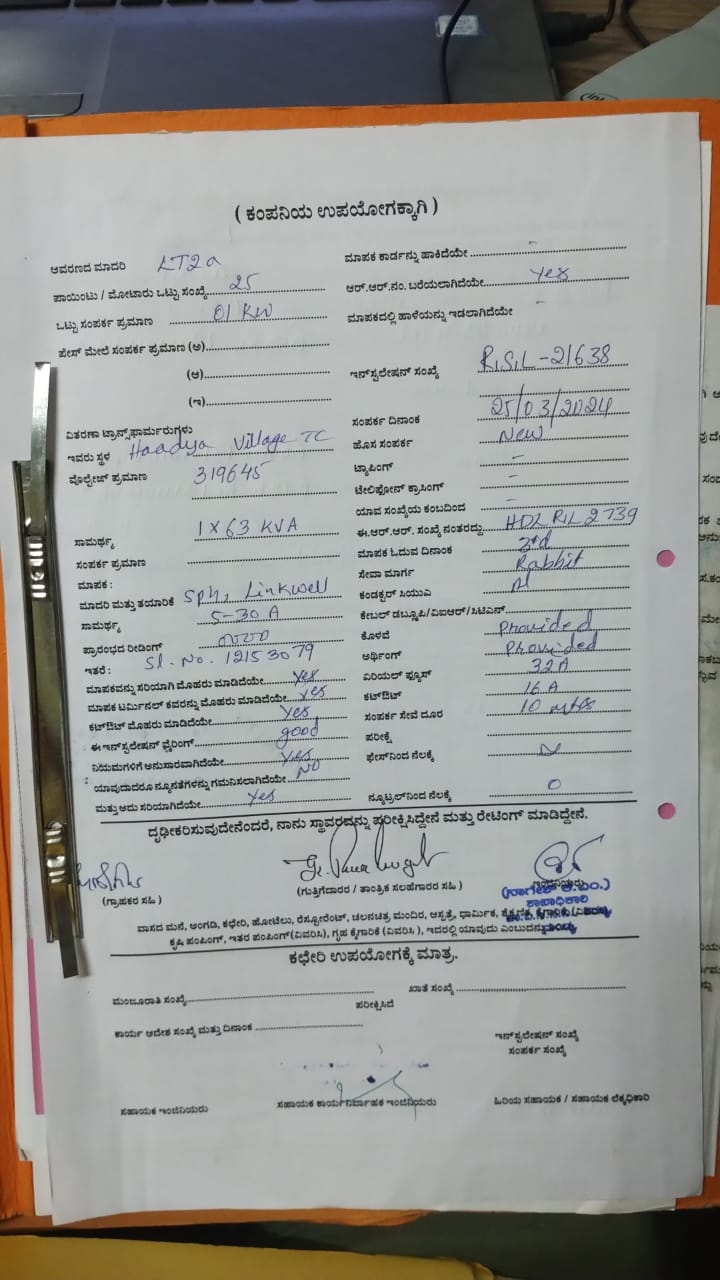 ( ಕಂಪನಿಯ ಉಪಯೋಗಕ್ಕಾಗಿ )
ಆವರಣದ ಮಾದರಿ LT2a
ಪಾಯಿಂಟು / ಮೋಟಾರು ಒಟ್ಟು ಸಂಖ್ಯೆ 25
ಒಟ್ಟು ಸಂಪರ್ಕ ಪ್ರಮಾಣ 01 KW
ಪೇಸ್ ಮೇಲೆ ಸಂಪರ್ಕ ಪ್ರಮಾಣ (ಅ)
(ಆ)
(ಇ)
ವಿತರಣಾ ಟ್ರಾನ್ಸ್‌ಫಾರ್ಮರುಗಳು
ಇವರು ಸ್ಥಳ Haadya Village TC
ವೋಲ್ಟೇಜ್ ಪ್ರಮಾಣ 319645
ಸಾಮರ್ಥ್ಯ 1 X 63 KVA
ಸಂಪರ್ಕ ಪ್ರಮಾಣ
ಮಾಪಕ :
ಮಾದರಿ ಮತ್ತು ತಯಾರಿಕೆ Linkwell
ಸಾಮರ್ಥ್ಯ 5-30 A
ಪ್ರಾರಂಭದ ರೀಡಿಂಗ್
ಇತರೆ : Sl. No. 12153079
ಮಾಪಕವನ್ನು ಸರಿಯಾಗಿ ಮೊಹರು ಮಾಡಿದೆಯೇ yes
ಮಾಪಕ ಟರ್ಮಿನಲ್ ಕವರನ್ನು ಮೊಹರು ಮಾಡಿದೆಯೇ yes
ಕಟ್‌ಔಟ್ ಮೊಹರು ಮಾಡಿದೆಯೇ yes
ಈ ಇನ್‌ಸ್ಟಲೇಷನ್ ವೈರಿಂಗ್ good
ನಿಯಮಗಳಿಗೆ ಅನುಸಾರವಾಗಿದೆಯೇ yes
ಯಾವುದಾದರೂ ನ್ಯೂನತೆಗಳನ್ನು ಗಮನಿಸಲಾಗಿದೆಯೇ No
ಮತ್ತು ಅದು ಸರಿಯಾಗಿದೆಯೇ yes
ಮಾಪಕ ಕಾರ್ಡನ್ನು ಹಾಕಿದೆಯೇ -
ಆರ್.ಆರ್.ನಂ. ಬರೆಯಲಾಗಿದೆಯೇ yes
ಮಾಪಕದಲ್ಲಿ ಹಾಳೆಯನ್ನು ಇಡಲಾಗಿದೆಯೇ -
ಇನ್‌ಸ್ಟಲೇಷನ್ ಸಂಖ್ಯೆ RISIL-21638
ಸಂಪರ್ಕ ದಿನಾಂಕ 25/03/2024
ಹೊಸ ಸಂಪರ್ಕ New
ಟ್ಯಾಪಿಂಗ್ -
ಟೆಲಿಫೋನ್ ಕ್ರಾಸಿಂಗ್ -
ಯಾವ ಸಂಖ್ಯೆಯ ಕಂಬದಿಂದ -
ಈ.ಆರ್.ಆರ್. ಸಂಖ್ಯೆ ನಂತರದ್ದು HDLRIL2739
ಮಾಪಕ ಓದುವ ದಿನಾಂಕ 3rd
ಸೇವಾ ಮಾರ್ಗ Rabbit
ಕಂಡಕ್ಟರ್ ಸಿಯುಎ
ಕೇಬಲ್ ಡಬ್ಲ್ಯೂಪಿ/ವಿಐಆರ್/ಸಿಟಿಎಸ್
ಕೊಳವೆ Provided
ಅರ್ಥಿಂಗ್ Provided
ಏರಿಯಲ್ ಫ್ಯೂಸ್ 32A
ಕಟ್‌ಔಟ್ 16 A
ಸಂಪರ್ಕ ಸೇವೆ ದೂರ 10 mtrs
ಪರೀಕ್ಷೆ
ಫೇಸ್‌ನಿಂದ ನೆಲಕ್ಕೆ
ನ್ಯೂಟ್ರಲ್‌ನಿಂದ ನೆಲಕ್ಕೆ 0
ದೃಢೀಕರಿಸುವುದೇನೆಂದರೆ, ನಾನು ಸ್ಥಾವರವನ್ನು ಪರೀಕ್ಷಿಸಿದ್ದೇನೆ ಮತ್ತು ರೇಟಿಂಗ್ ಮಾಡಿದ್ದೇನೆ.
(ಗ್ರಾಹಕರ ಸಹಿ )
(ಗುತ್ತಿಗೆದಾರರ / ತಾಂತ್ರಿಕ ಸಲಹೆಗಾರರ ಸಹಿ )
(ನಾಗೇಶ್ ಕೆ.ಎಂ.)
ಶಾಖಾಧಿಕಾರಿ
ವಾಸದ ಮನೆ, ಅಂಗಡಿ, ಕಛೇರಿ, ಹೋಟೆಲು, ರೆಸ್ಟೋರೆಂಟ್, ಚಲನಚಿತ್ರ ಮಂದಿರ, ಆಸ್ಪತ್ರೆ, ಧಾರ್ಮಿಕ, ಶೈಕ್ಷಣಿಕ, ಕೈಗಾರಿಕೆ
ಕೃಷಿ ಪಂಪಿಂಗ್, ಇತರ ಪಂಪಿಂಗ್ (ವಿವರಿಸಿ), ಗೃಹ ಕೈಗಾರಿಕೆ (ವಿವರಿಸಿ ), ಇದರಲ್ಲಿ ಯಾವುದು ಎಂಬುದನ್ನು
ಕಛೇರಿ ಉಪಯೋಗಕ್ಕೆ ಮಾತ್ರ.
ಮಂಜೂರಾತಿ ಸಂಖ್ಯೆ ಖಾತೆ ಸಂಖ್ಯೆ
ಪರೀಕ್ಷಿಸಿದೆ
ಕಾರ್ಯ ಆದೇಶ ಸಂಖ್ಯೆ ಮತ್ತು ದಿನಾಂಕ
ಇನ್‌ಸ್ಟಲೇಷನ್ ಸಂಖ್ಯೆ
ಸಂಪರ್ಕ ಸಂಖ್ಯೆ
ಸಹಾಯಕ ಇಂಜಿನಿಯರು ಸಹಾಯಕ ಕಾರ್ಯನಿರ್ವಾಹಕ ಇಂಜಿನಿಯರು ಹಿರಿಯ ಸಹಾಯಕ / ಸಹಾಯಕ ಲೆಕ್ಕಧಿಕಾರಿ